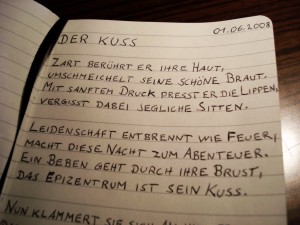 01.06.2008
DER KUSS
ZART BERÜHRT ER IHRE HAUT,
UMSCHMEICHELT SEINE SCHÖNE BRAUT.
MIT SANFTEM DRUCK PRESST ER DIE LIPPEN,
VERGISST DABEI JEGLICHE SITTEN.
LEIDENSCHAFT ENTBRENNT WIE FEUER,
MACHT DIESE NACHT ZUM ABENTEUER.
EIN BEBEN GEHT DURCH IHRE BRUST,
DAS EPIZENTRUM IST SEIN KUSS.
NUN KLAMMERT SIE SICH